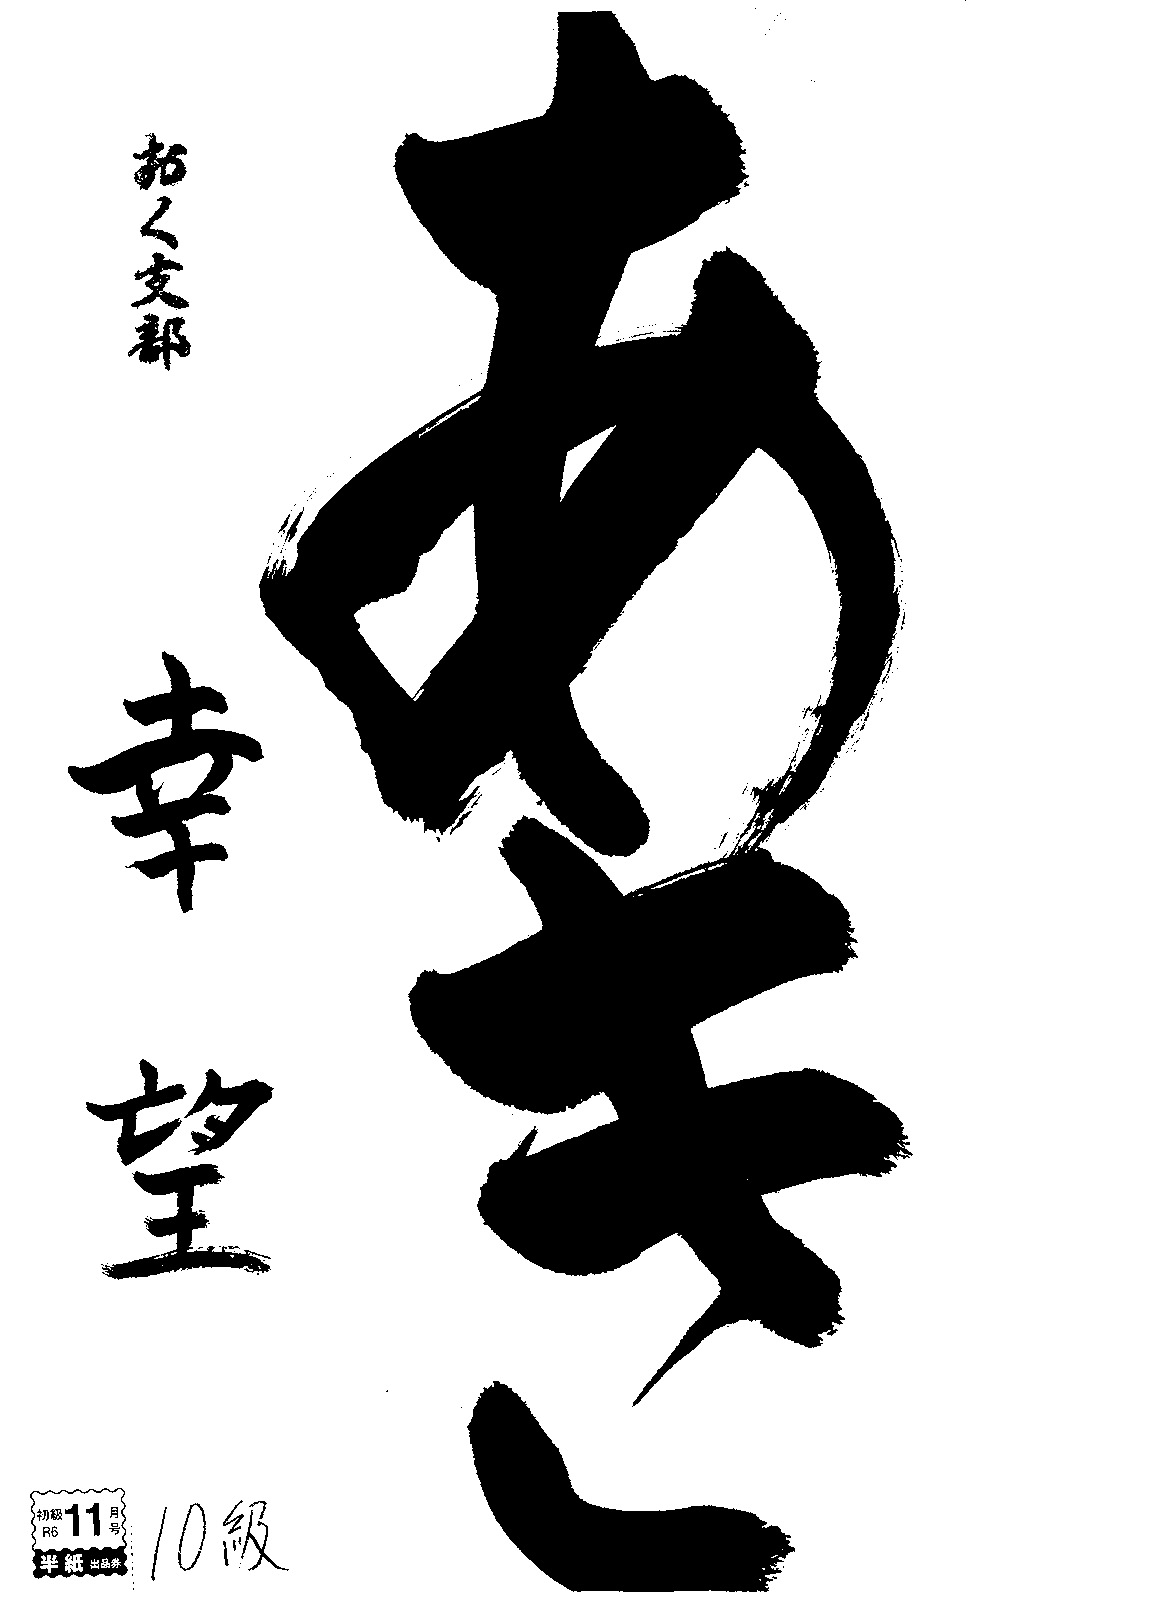 あき
おく支部
幸望
初級
R6
11
月号
半紙 出品券
10級